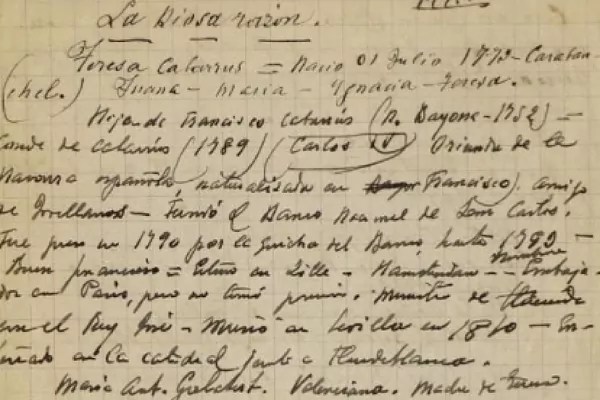 La Diosa razón.
Teresa Cabarrus = Nacio 01 Julio 1773 - Caraban-
(chel.) Juana - Maria - Ignacia - Teresa.
Hija de Francisco Cabarrús (N. Bayona - 1752) =
Conde de Cabarrús (1789) (Carlos IV) Oriunda de la
Navarra española, naturalizada en Francisco). amigo
de Jovellanos - Fundó el Banco Nacional de San Carlos.
Fue preso en 1790 por la quiebra del Banco, hasta 1792 -
Buen financiero = Estuvo en Lille - Hamsterdam - - Embaja-
dor en Paris, pero no tomó posesion. Ministro de Hacienda
con el Rey José - Murió en Sevilla en 1810 - En-
terrado en la catedral junto a Floridablanca.
Maria Ant. Galabert. Valenciana. Madre de